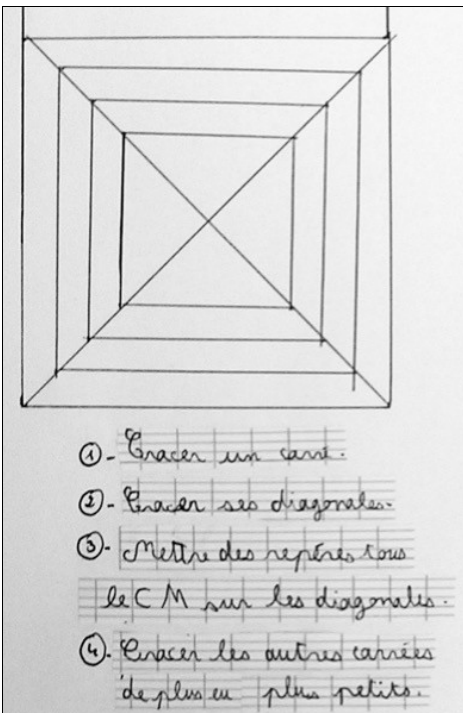 ① - Tracer un carré.
② - Tracer ses diagonales.
③ - Mettre des repères tous
le CM sur les diagonales.
④ - Tracer les autres carrées
de plus en plus petits.